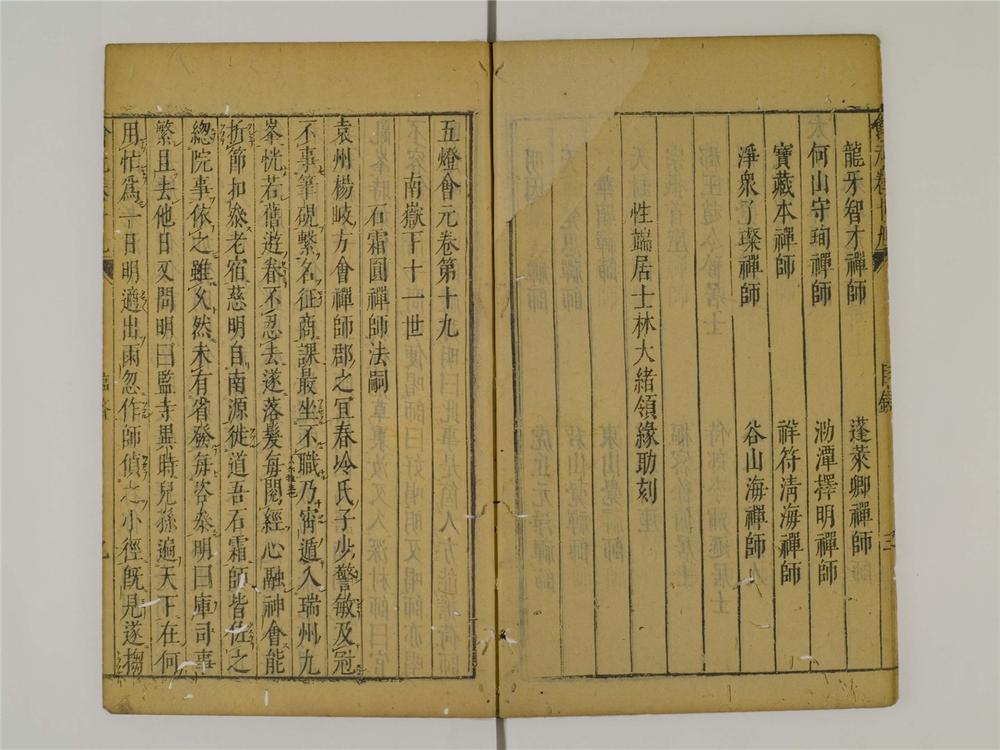 龍牙智才禪師　蓬萊卿禪師
何山守珣禪師　泐潭擇明禪師
寶藏本禪師　祥符清海禪師
淨衆了璨禪師　谷山海禪師
性端居士林大緒領緣助刻
五燈會元卷第十九
南嶽下十一世
石霜圓禪師法嗣
袁州楊岐方會禪師郡之宜春冷氏子少警敏及冠
不事筆硯繫名征商課最坐不職乃宵遁入瑞州九
峯恍若舊遊眷不忍去遂落髮每閱經心融神會能
折節扣參老宿慈明自南源徙道吾石霜師皆佐之
總院事依之雖久然未有省發每咨參明曰庫司事
繁且去他日又問明曰監寺異時兒孫遍天下在何
用忙爲一日明適出雨忽作師偵之小徑旣見遂搊